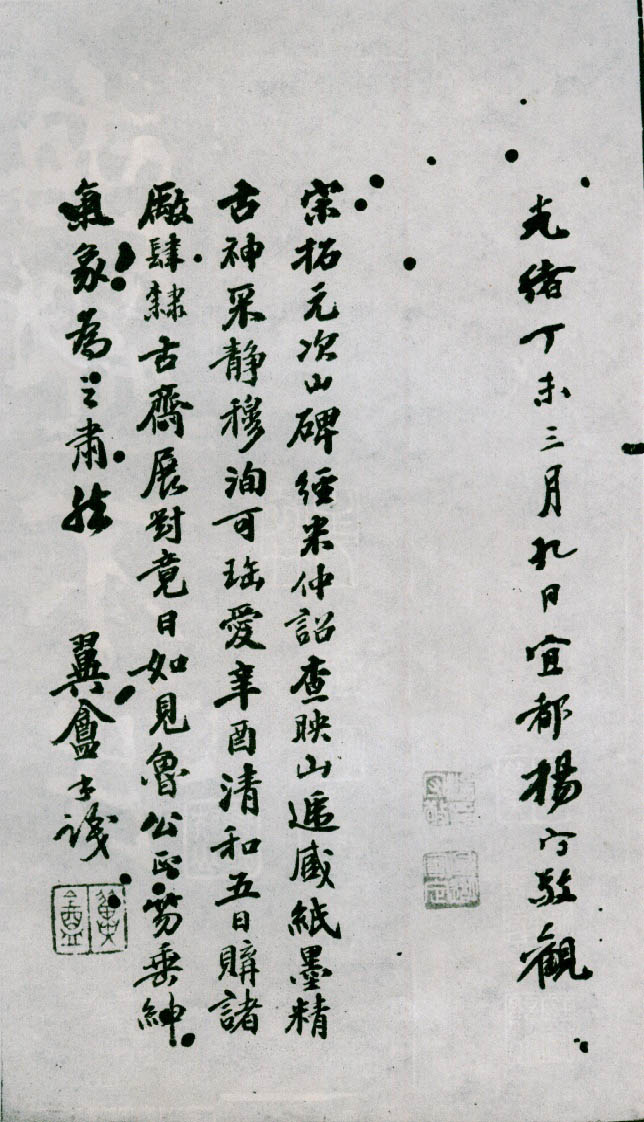 光緒丁未三月九日宜都楊守敬觀
宋拓元次山碑經米仲詔查映山遞臧紙墨精
古神采靜穆洵可珤愛辛酉清和五日購諸
廠肆隸古齋展對竟日如見魯公正笏垂紳
氣象為之肅然 翼盦書識
翼盦